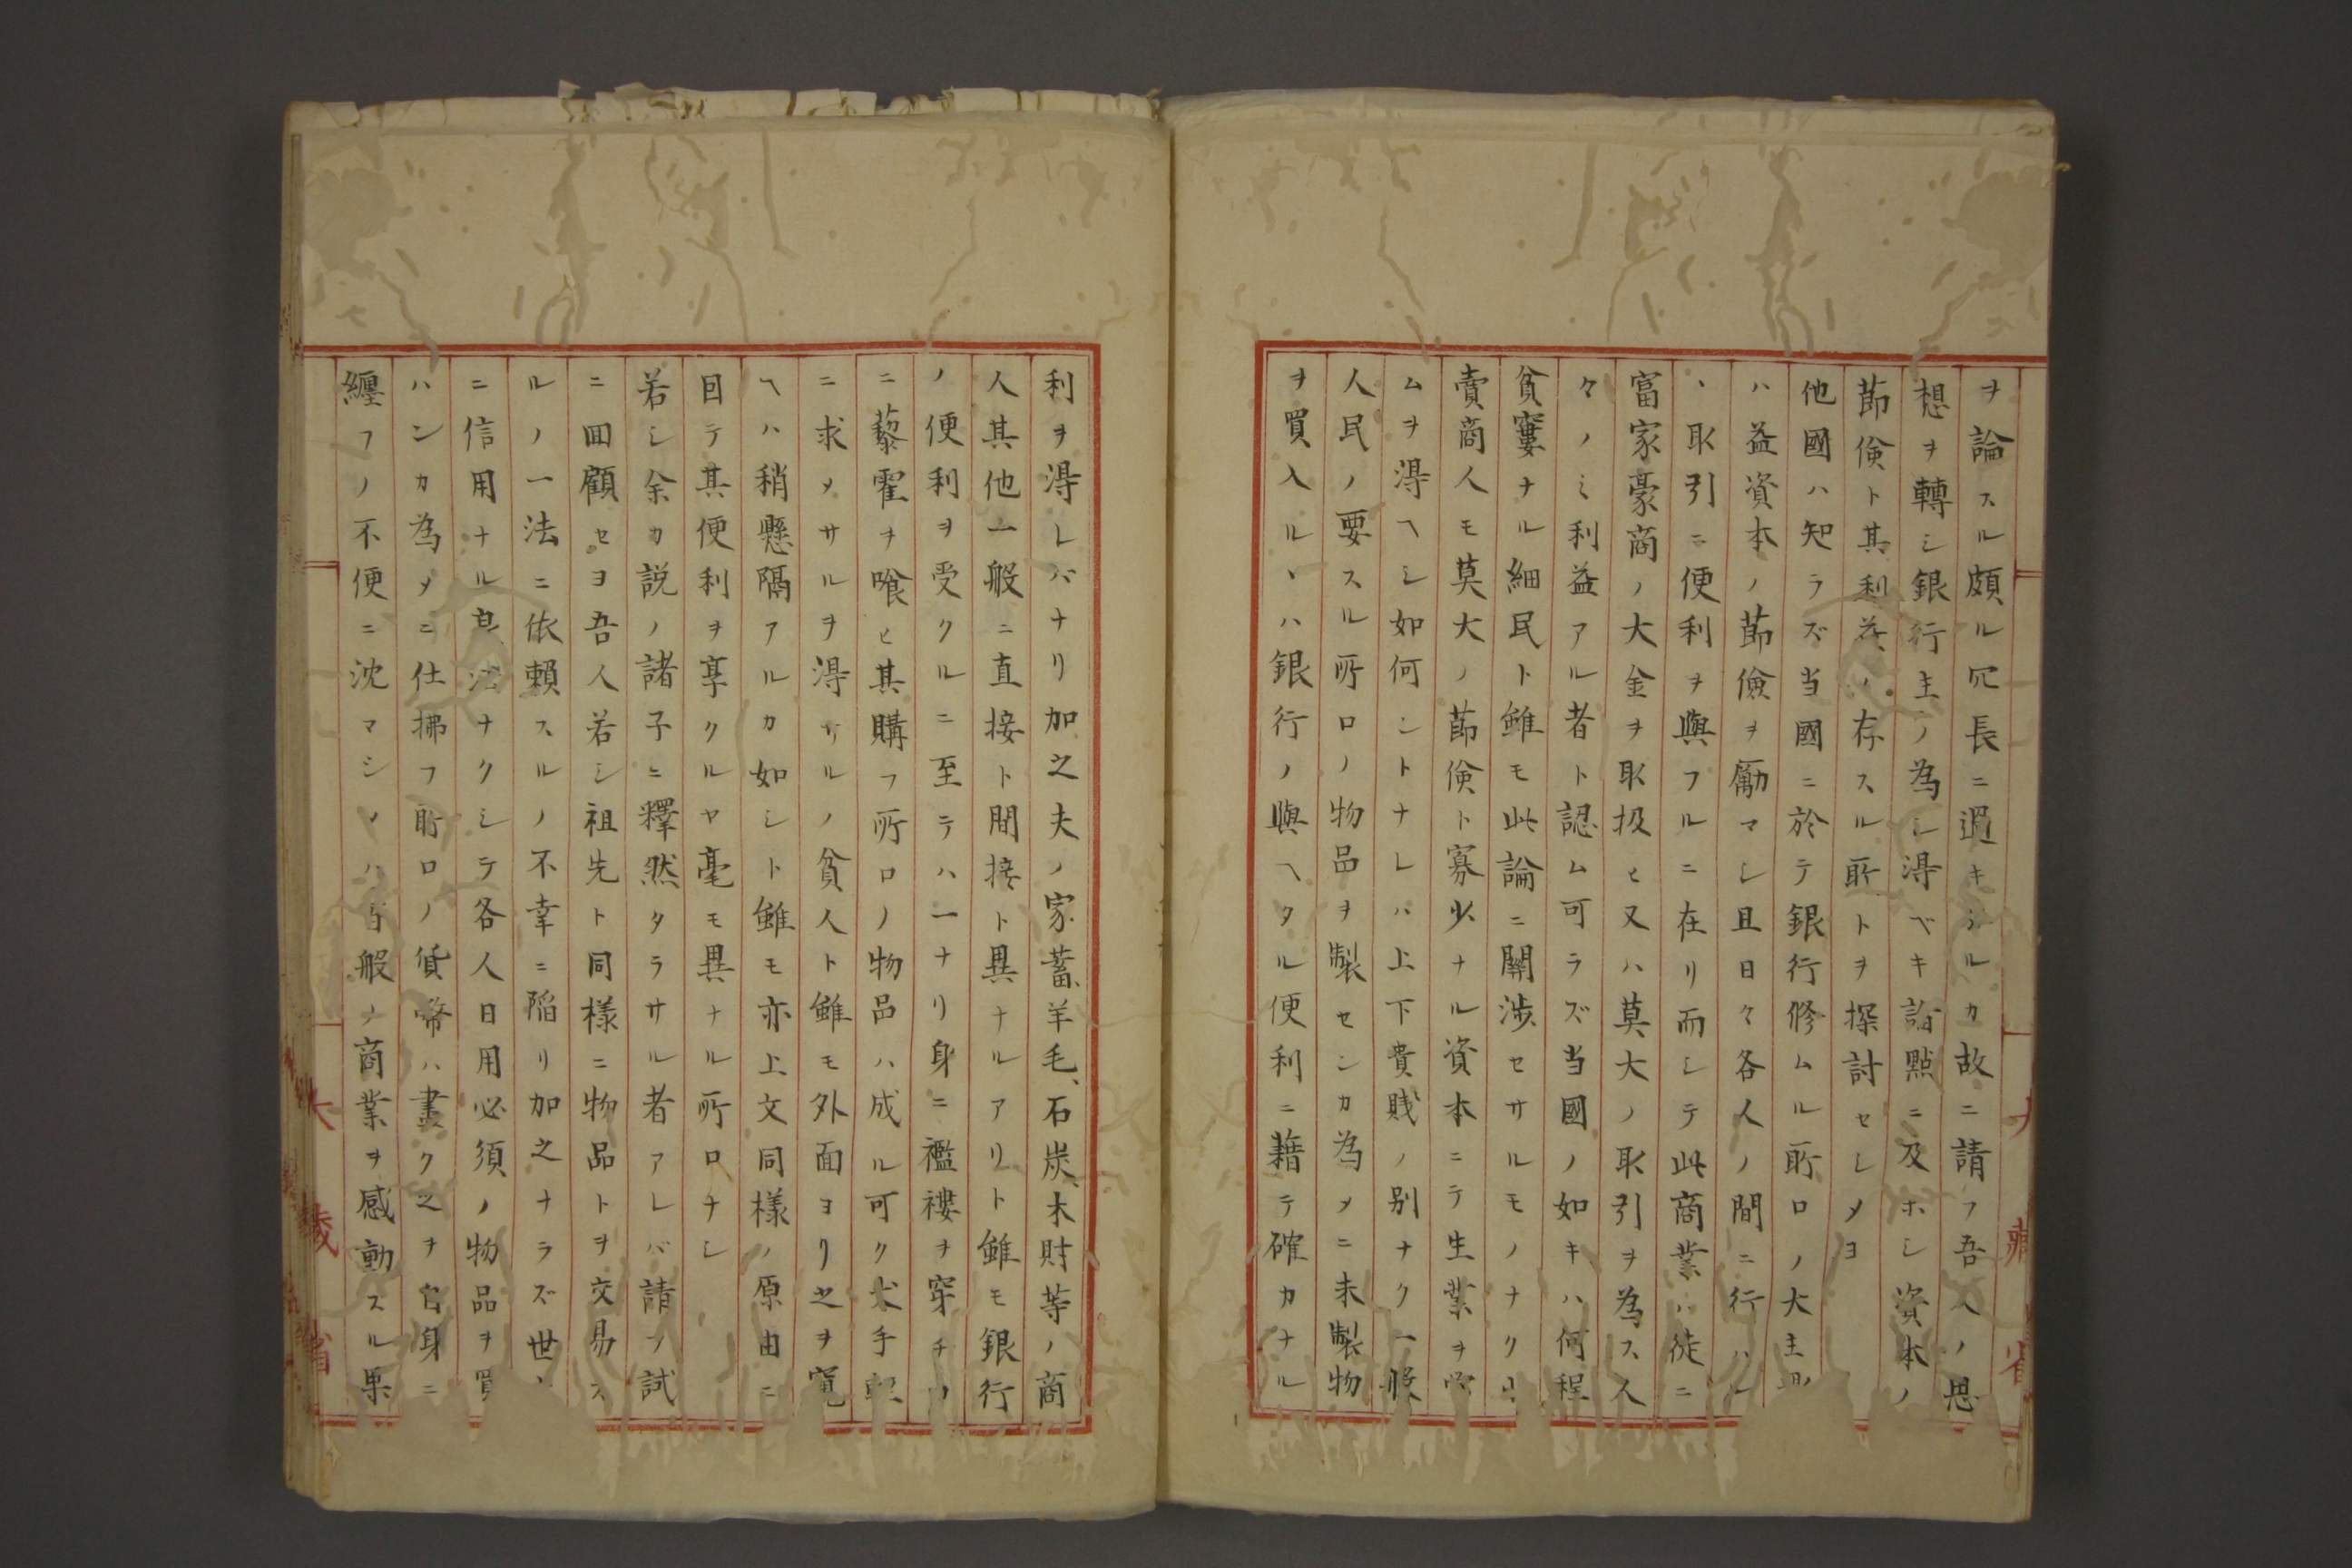 ヲ論スル頗ル冗長ニ過キシルカ故ニ請フ吾人ノ思
想ヲ轉シ銀行主ノ為シ得ベキ諸點ニ及ホシ資本ノ
節儉ト其利益ノ存スル所トヲ探討セシメヨ
他國ハ知ラズ当國ニ於テ銀行修ムル所ロノ大主
ハ益資本ノ節儉ヲ勵マシ且日々各人ノ間ニ行ハレ
、取引ニ便利ヲ與フルニ在リ而シテ此商業ハ徒ニ
富家豪商ノ大金ヲ取扱ヒ又ハ莫大ノ取引ヲ為ス人
々ノミ利益アル者ト認ム可ラズ当國ノ如キハ何程
貧窶ナル細民ト雖モ此論ニ關渉セサルモノナク
賣商人モ莫大ノ節儉ト寡少ナル資本ニテ生業ヲ営
ムヲ得ヘシ如何ントナレハ上下貴賎ノ别ナク一般
人民ノ要スル所ロノ物品ヲ製センカ為メニ未製物
ヲ買入ルヽハ銀行ノ與ヘタル便利ニ藉テ確カナル
大藏省
利ヲ得レバナリ加之夫ノ家蓄、羊毛、石炭、木財等ノ商
人其他一般ニ直接ト間接ト異ナルアリト雖モ銀行
ノ便利ヲ受クルニ至テハ一ナリ身ニ襤褸ヲ穿チロ
ニ藜霍ヲ喰ヒ其購フ所ロノ物品ハ成ル可ク大手
ニ求メサルヲ得サルノ貧人ト雖モ外面ヨリ之ヲ窺
ヘハ稍懸隔アルカ如シト雖モ亦上文同様ノ原由ニ
因テ其便利ヲ享クルヤ毫モ異ナル所ロナシ
若シ余カ説ノ諸子ニ釋然タラサル者アレバ請フ試
ニ回顧セヨ吾人若シ祖先ト同様ニ物品トヲ交易ス
ルノ一法ニ依頼スルノ不幸ニ陥リ加之ナラズ世ヽ
ニ信用ナル其法ナクシテ各人日用必須ノ物品ヲ買
ハンカ為メニ仕拂フ所ロノ貨幣ハ盡ク之ヲ自身ニ
纏フノ不便ニ沈マシメハ百般ノ商業ヲ感動スル果
大藏省